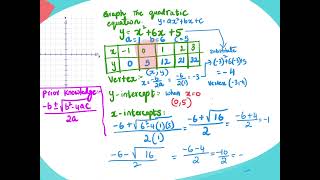 Graph the quadratic
equation y = ax²+bx+c
y = x²+6x+5
a=1 b=6 c=5
x -1 0 1 2 3
y 0 5 12 21 32
(x, y)
substitute
(-3)²+6(-3)+5
= -4
vertex = x = -b/2a = -6/2(1) = -3
vertex (-3,-4)
Prior knowledge
-b±√b²-4ac
2a
y-intercept: when x=0
(0,5)
x-intercepts:
-6+√6²-4(1)(5) / 2(1) = -6+√16 / 2 = -6+4 / 2 = -1
-6-√16 / 2 = -6-4 / 2 = -10 / 2 =